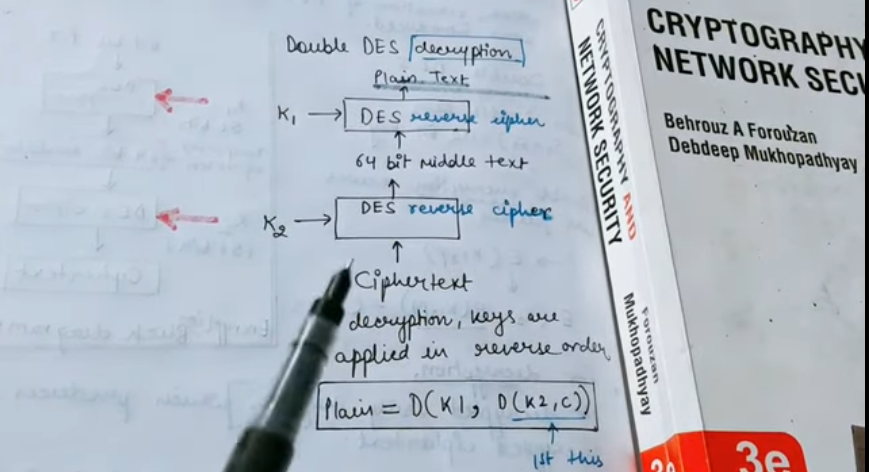 Double DES decryption
Plain Text
K1 → DES reverse cipher
64 bit middle text
K2 → DES reverse cipher
Ciphertext
decryption, keys are
applied in reverse order
Plain = D(K1, D(K2, C))
1st this
CRYPTOGRAPHY AND
NETWORK SECURITY
Forouzan
Mukhopadhyay
3e
CRYPTOGRAPHY
NETWORK SECU
Behrouz A Forouzan
Debdeep Mukhopadhyay
3e